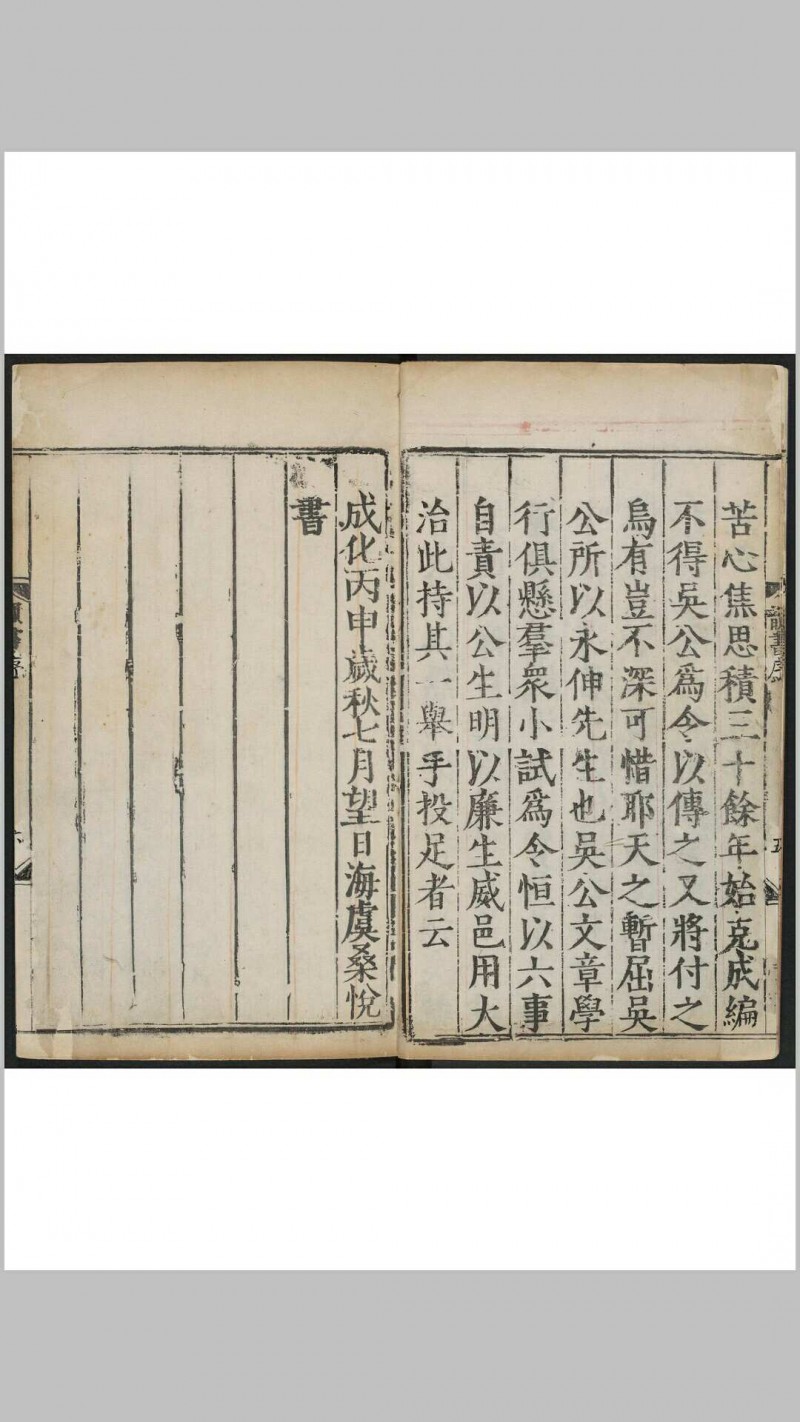 韻書序
五
苦心焦思積三十餘年始克成編
不得吳公爲令以傳之又將付之
烏有豈不深可惜耶天之暫屈吳
公所以永伸先生也吳公文章學
行俱懸羣衆小試爲令恒以六事
自責以公生明以廉生威邑用大
治此持其一舉手投足者云
成化丙申歲秋七月望日海虞桑悅
書
韻書序
六